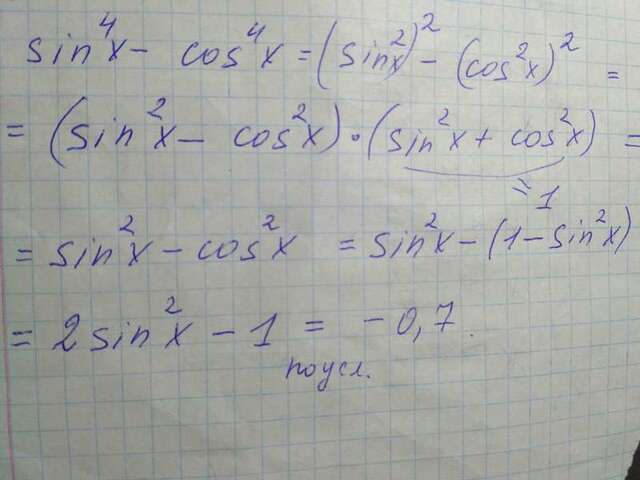 sin⁴x − cos⁴x = (sin²x)² − (cos²x)² =
= (sin²x − cos²x) · (sin²x + cos²x) =
= 1
= sin²x − cos²x = sin²x − (1 − sin²x)
= 2sin²x − 1 = −0,7.
поусл.